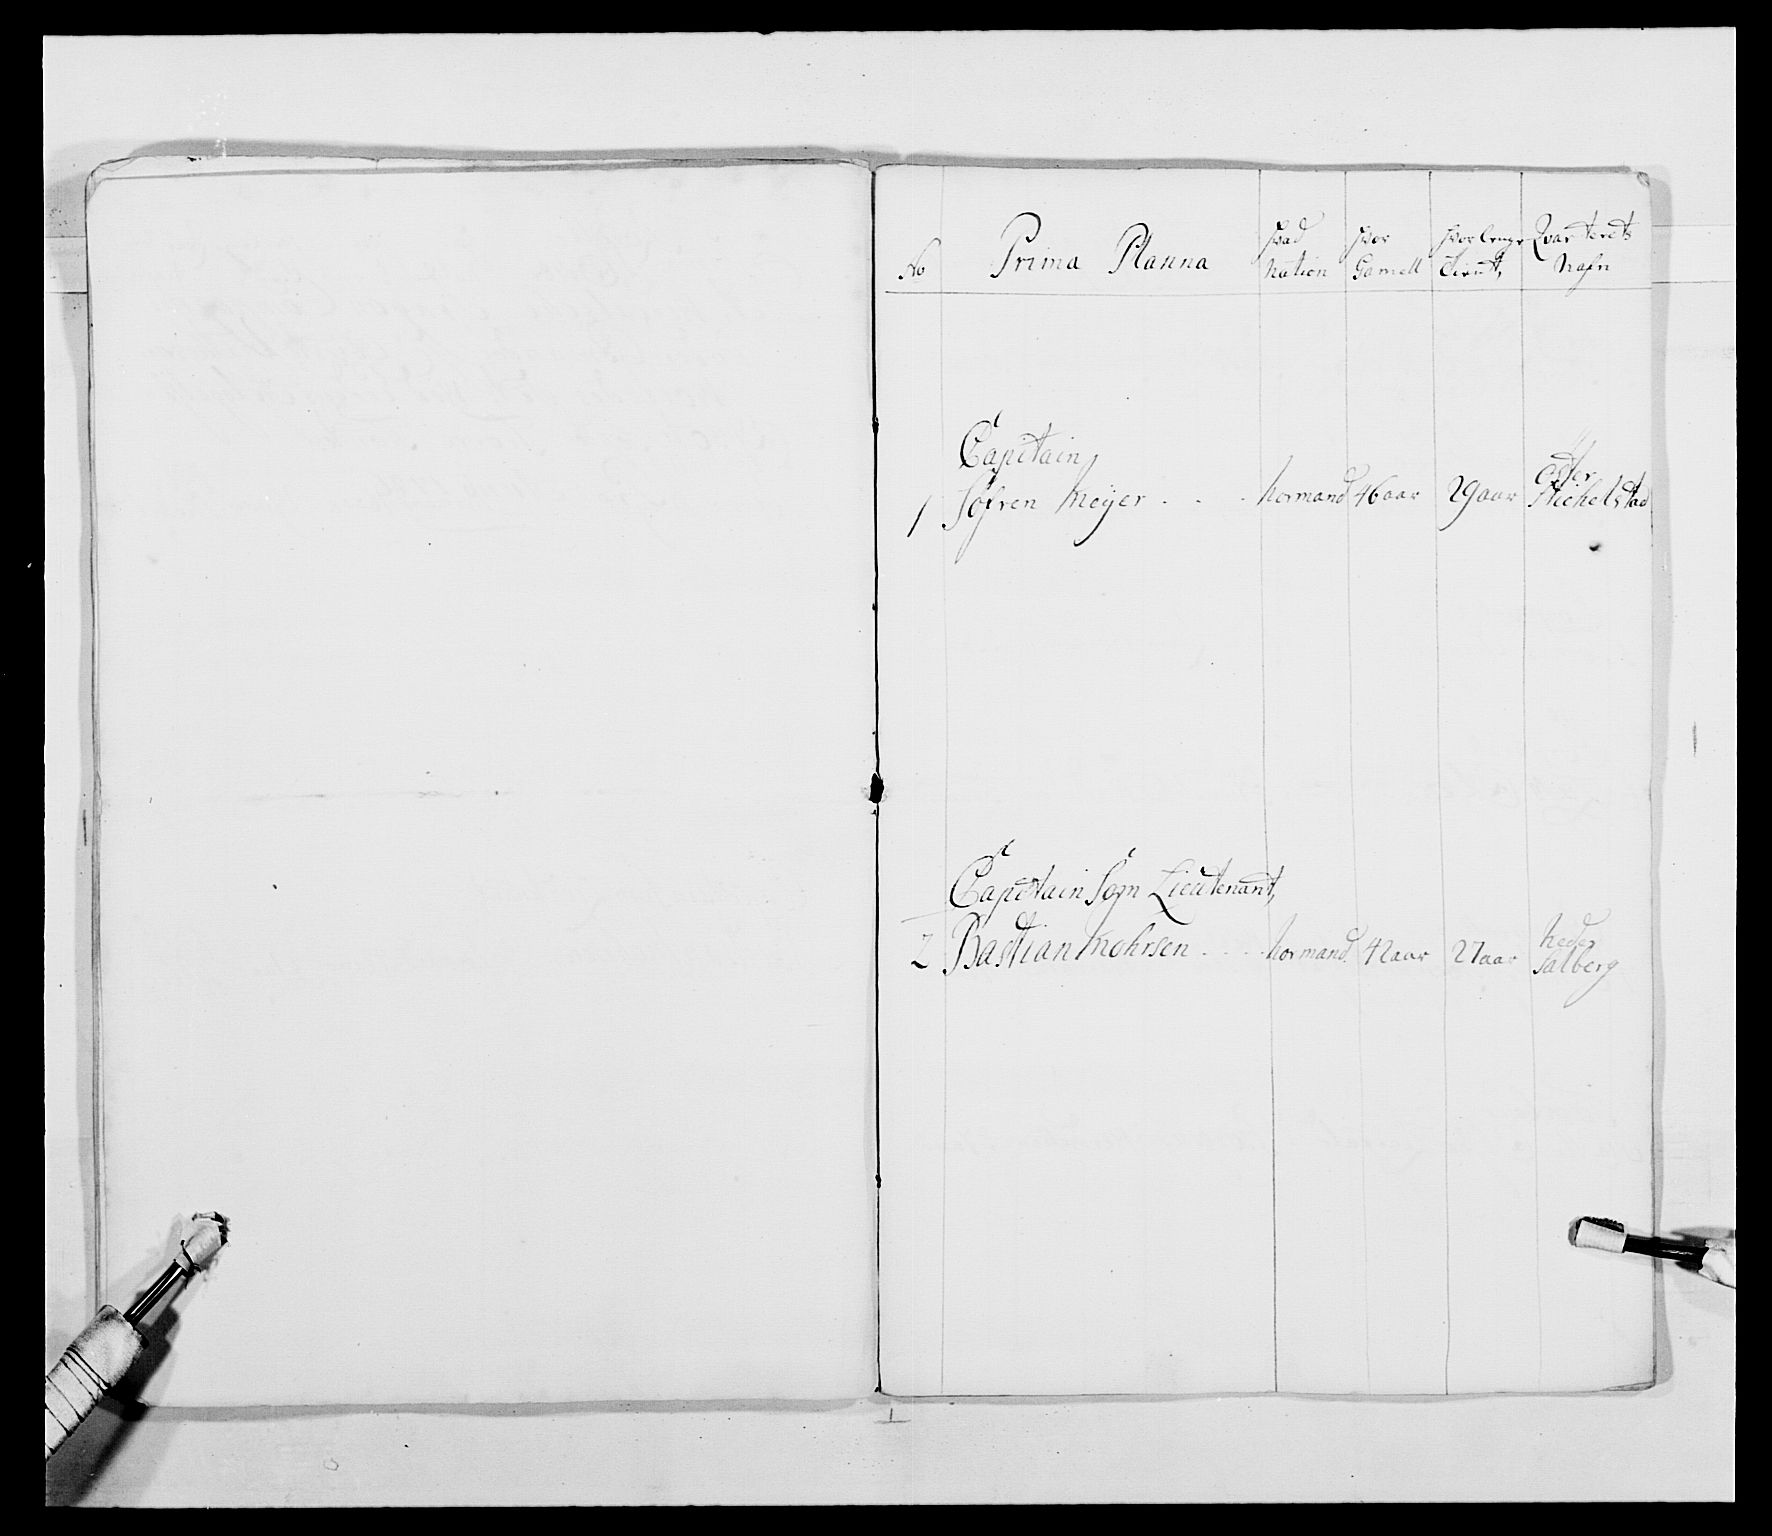 No Prima Planna Hvad Nation Hvor Gamell Hvor lenge tient, Qvarterets Nafn
Capitain,
1 Søfren Meÿer . . . Normand 46 aar 29 aar Öster Michelstad
Capitain Sogn Lieutenant,
2 Bastian Mohrsen . . . Normand 42 aar 27 aar Neder Salberg
1